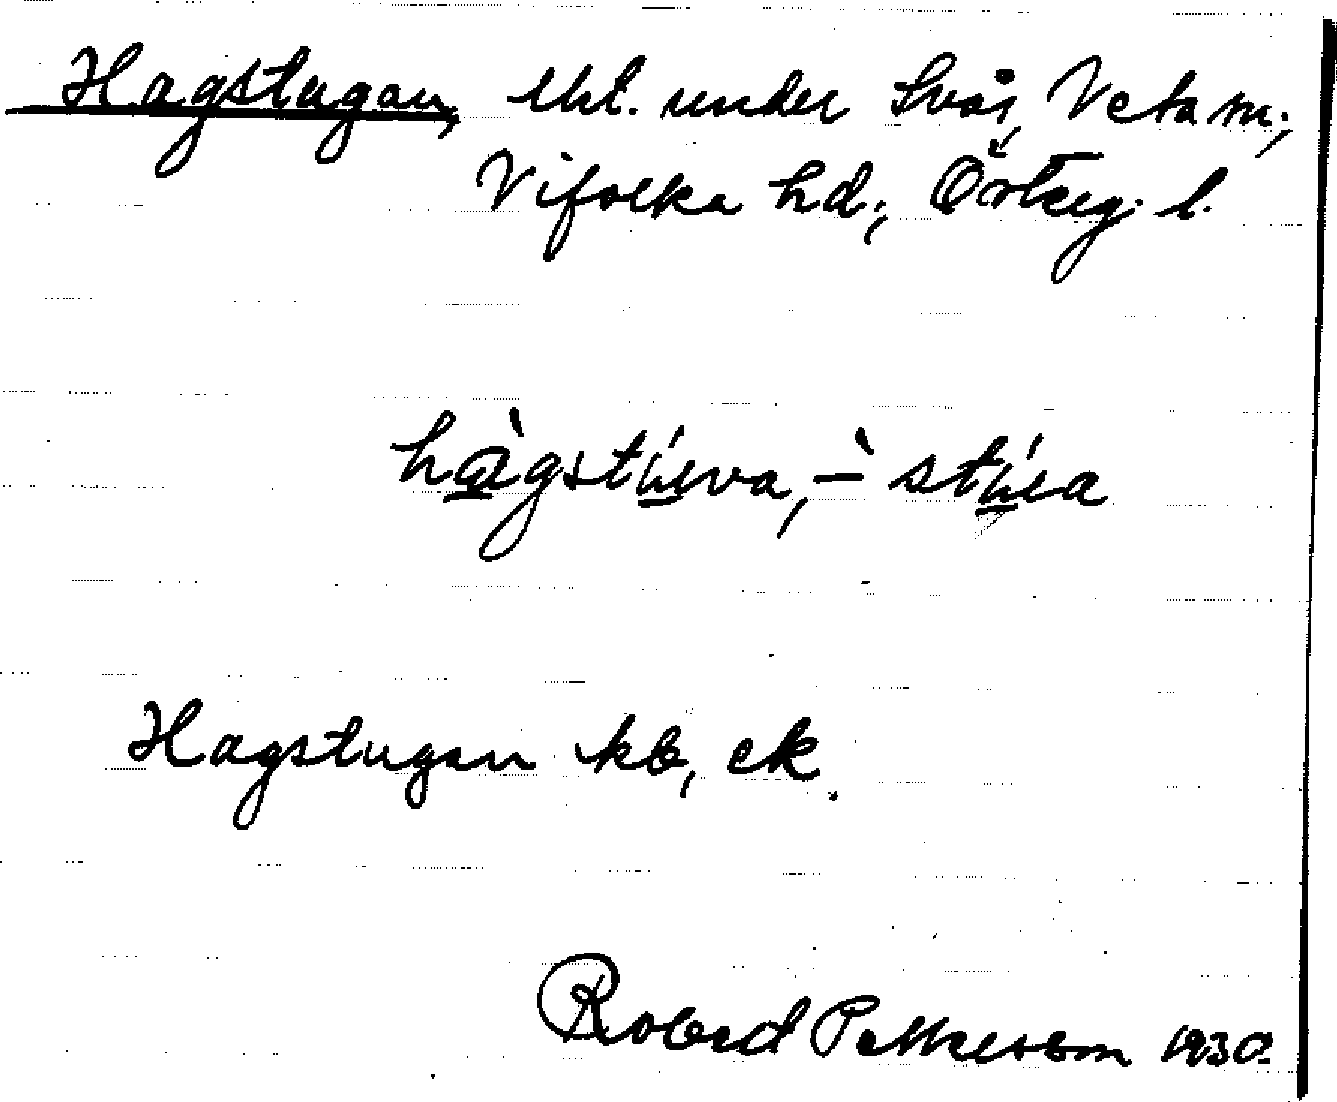 Hagstugan, lht. under Svår, Veta sn.,
Vifolka hd., Östeg. l.
hàgstúva, -̀ stúa
Hagstugan kb, ek.
Robert Pettersson 1930.